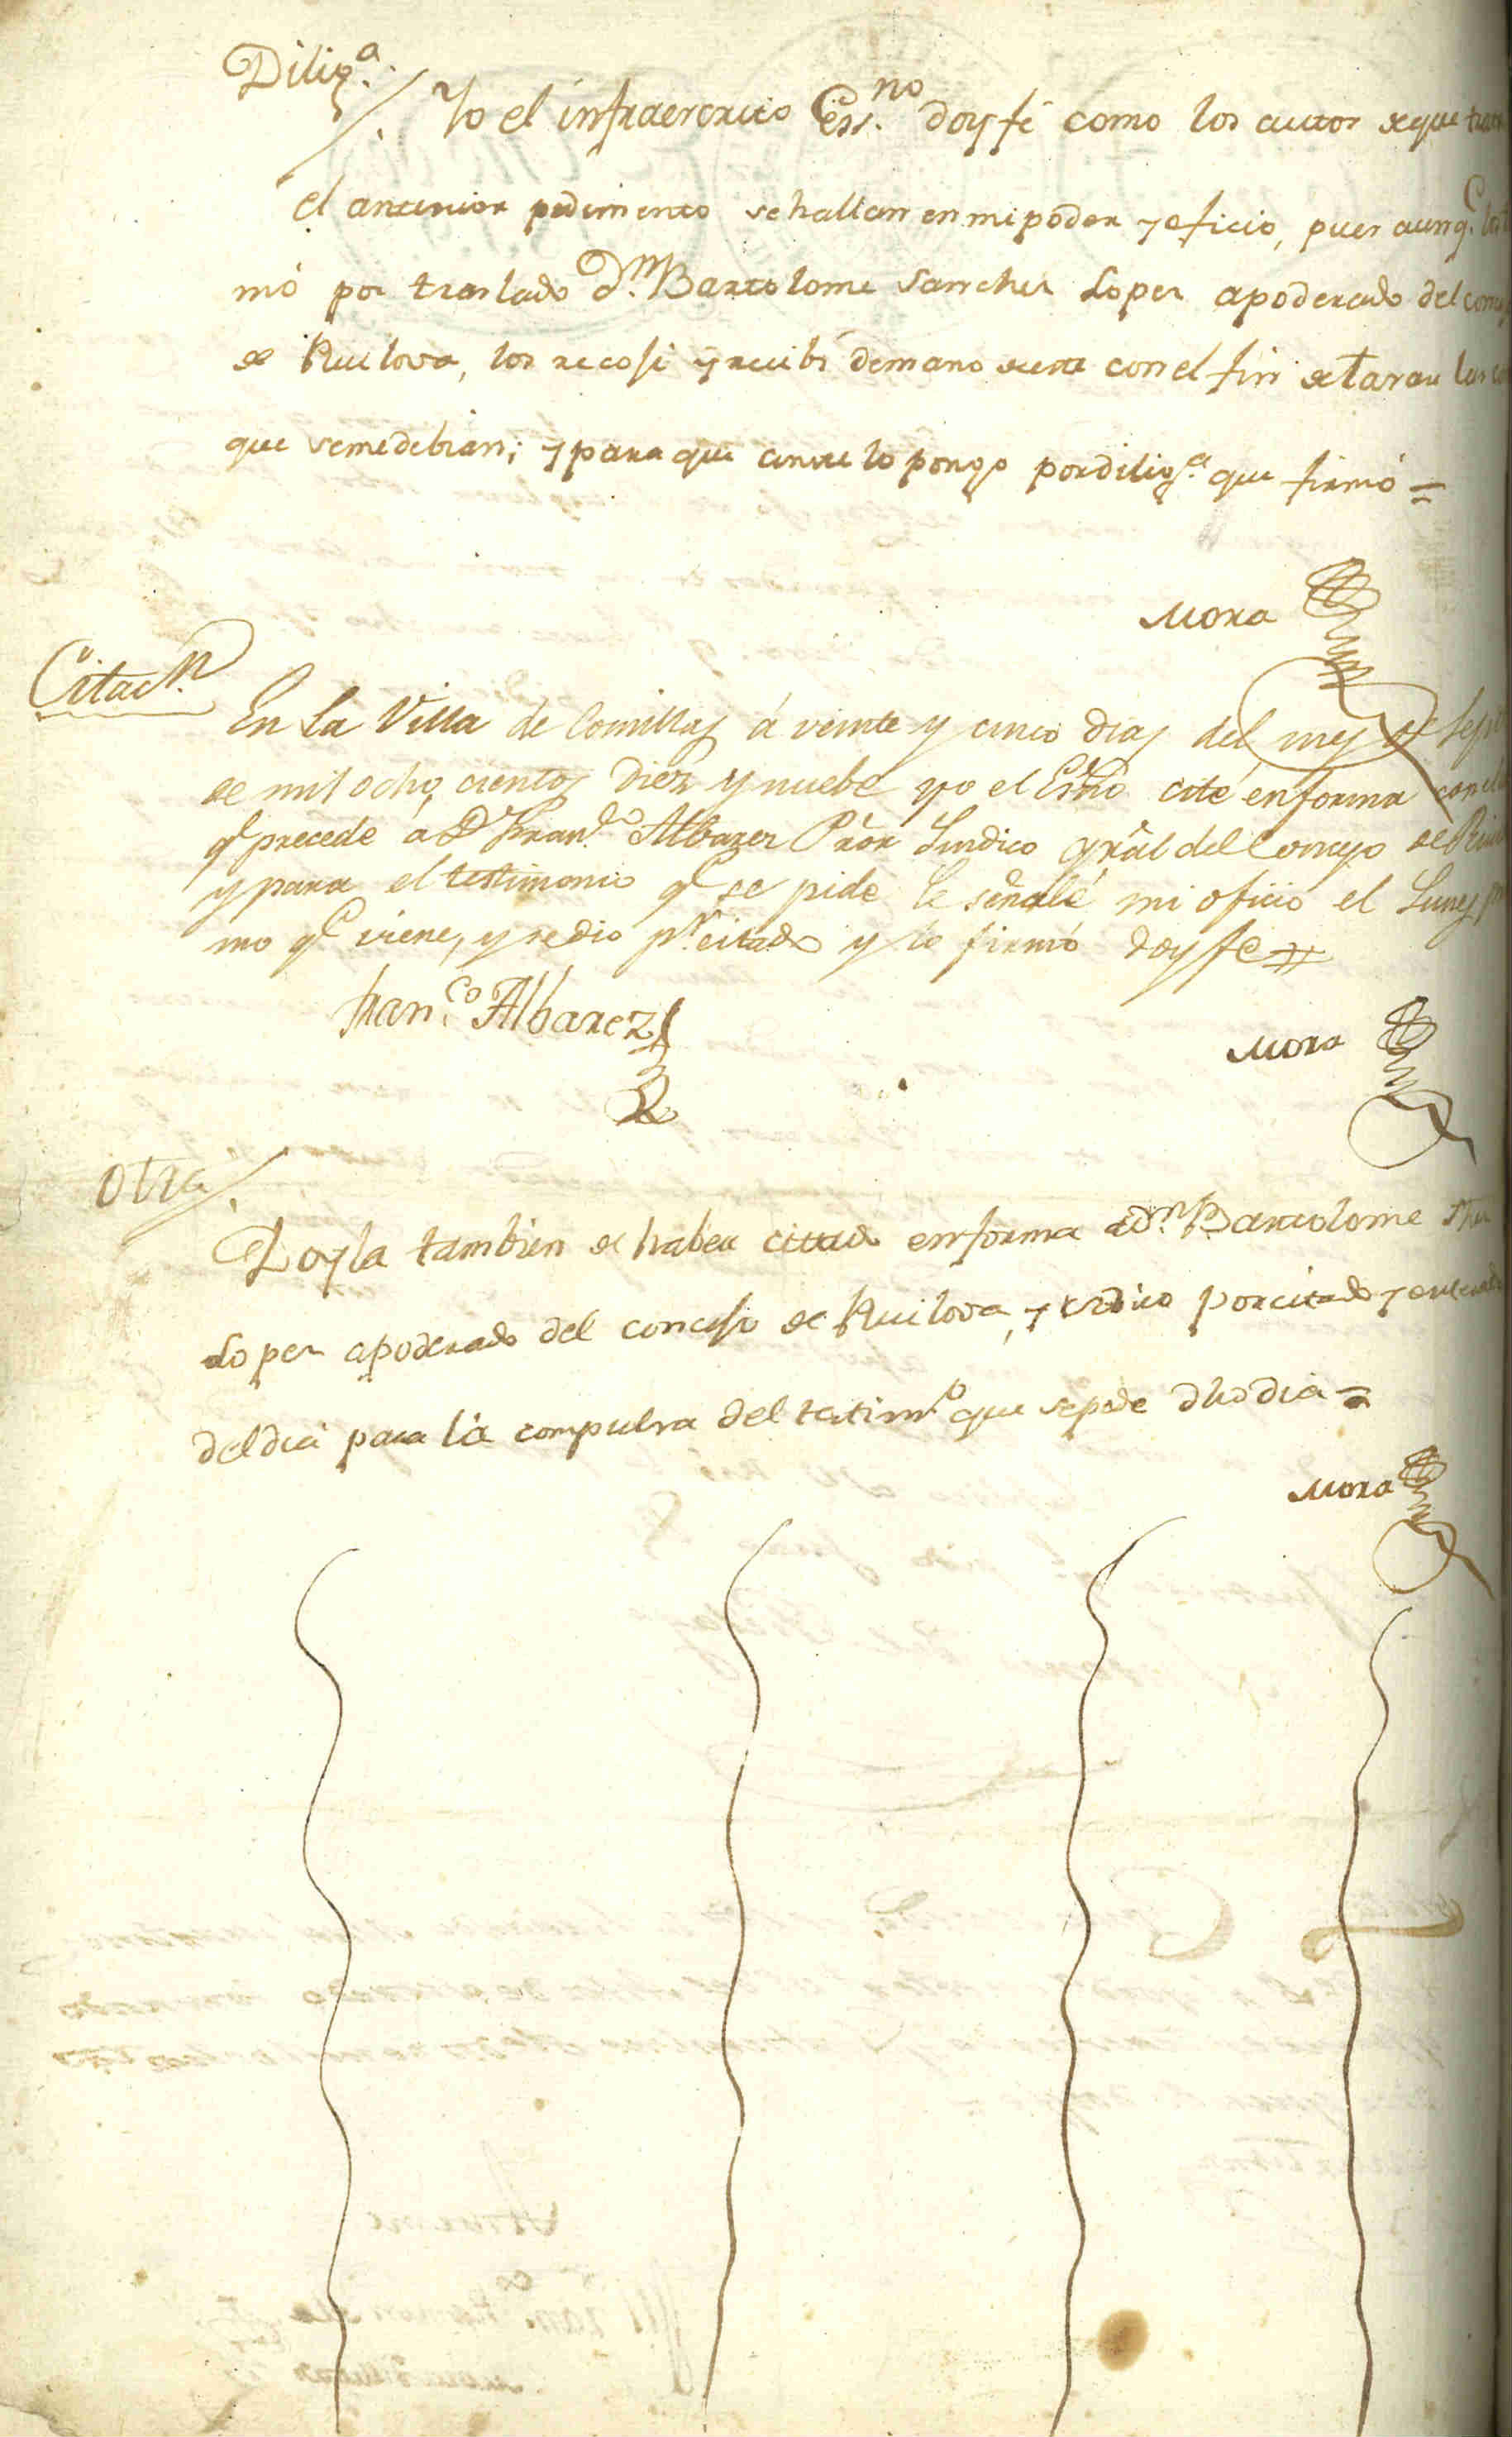 Dilig.ª
Yo el infraescrito Ess.no doy fé como los autos de que
el anterior pedimento se hallan en mi poder y oficio, pues aunq.e
mó por traslado D.n Bartolome Sanchez Lopez apoderado del
de Ruilova, los recojí y recibí de mano de este con el fin de tasar las
que se me debian; y para que conste lo pongo por dilig.ª que firmó =
Mora
Citac.n
En la Villa de Comillas á veinte y cinco dias del mes de
de mil ocho cientos diez y nuebe yo el Esño cité en forma
q.e precede a D.n Fran.co Albarez Prõr Sindico grãl del Concejo de
y para el testimonio q.e se pide le señalé mi oficio el Lunes
mo q.e viene, y se dio p.r citado y lo firmó doy fe
Fran.co Albarez
Mora
Otra
Doyla tambien de haber citado en forma a D.n Bartolome
Lopez apoderado del concejo de Ruilova, y se dio por citado y
del dia para la compulsa del testim.o que se pide dho dia =
Mora